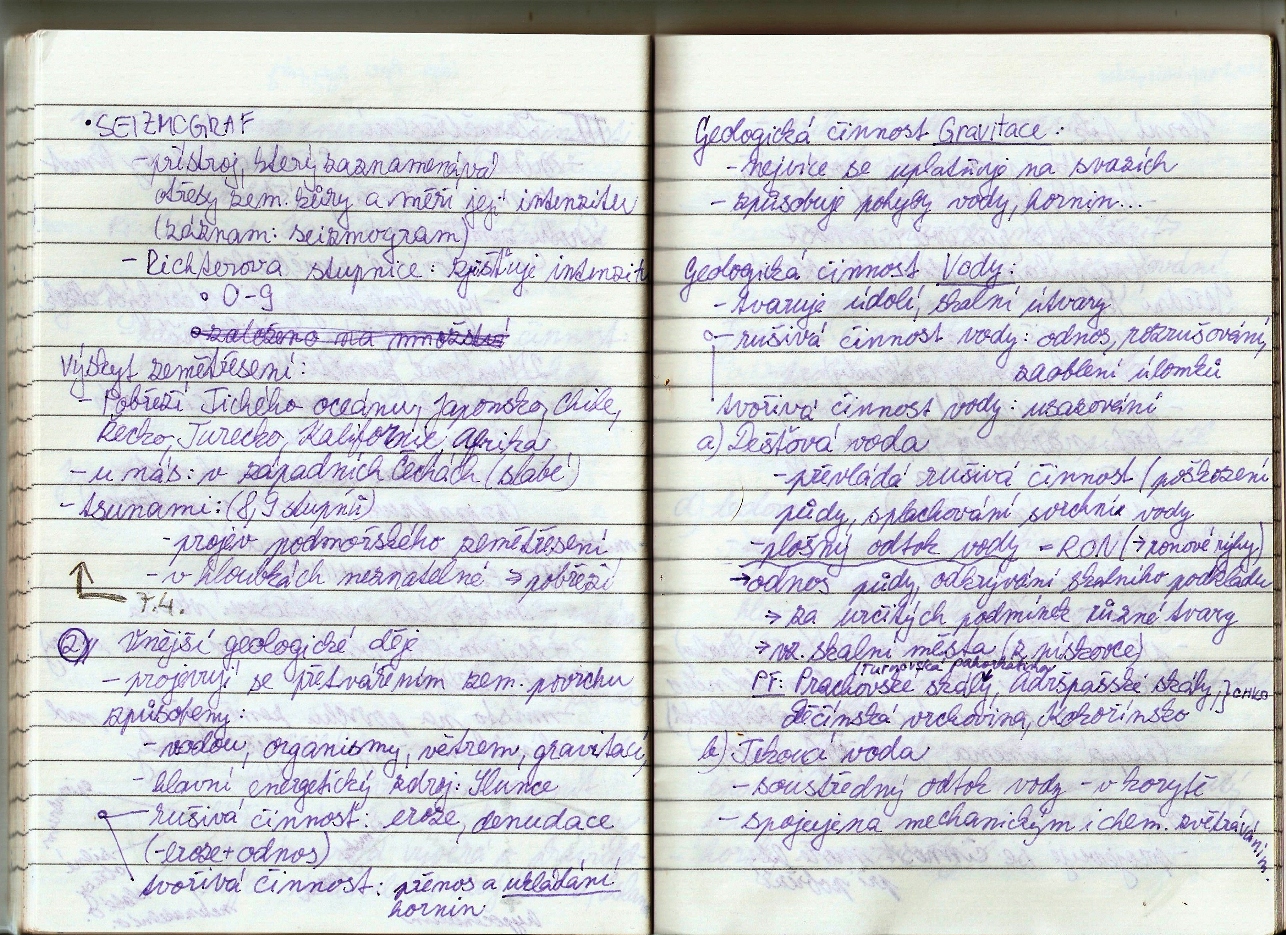 • SEIZMOGRAF
- přístroj, který zaznamenává
otřesy zem. kůry a měří její intenzitu
(záznam: seizmogram)
- Richterova stupnice: zjišťuje intenzitu
• 0-9
• založeno na množství
Výskyt zemětřesení:
- Pobřeží Tichého oceánu, Japonsko, Chile,
Řecko, Turecko, Kalifornie, Afrika
- u nás: v západních Čechách (slabé)
- tsunami: (8,9 stupňů)
- projev podmořského zemětřesení
- v hloubkách neznatelné → pobřeží
7.4.
2) Vnější geologické děje
- projevují se přetvářením zem. povrchu
způsobeny:
- vodou, organismy, větrem, gravitací
- hlavní energetický zdroj: Slunce
- rušivá činnost: eroze, denudace
(-eroze+odnos)
tvořivá činnost: přenos a ukládání
hornin
Geologická činnost Gravitace:
- nejvíce se uplatňuje na svazích
- způsobuje pohyby vody, hornin...
Geologická činnost Vody:
- tvaruje údolí, skalní útvary
- rušivá činnost vody: odnos, rozrušování,
zaoblení úlomků
tvořivá činnost vody: usazování
a) Dešťová voda
- převládá rušivá činnost (poškození
půdy, splachování svrchní vody
- plošný odtok vody = RON (→ ronové rýhy)
→ odnos půdy, odkrývání skalního podkladu
→ za určitých podmínek různé tvary
→ vz. skalní města (z pískovce)
Turnovská pahorkatina
Př: Prachovské skály, Adršpašské skály, } CHKO
děčínská vrchovina, Kokořínsko
b) Tekoucí voda
- soustředný odtok vody - v korytě
- spojena mechanickým i chem. zvětráváním.